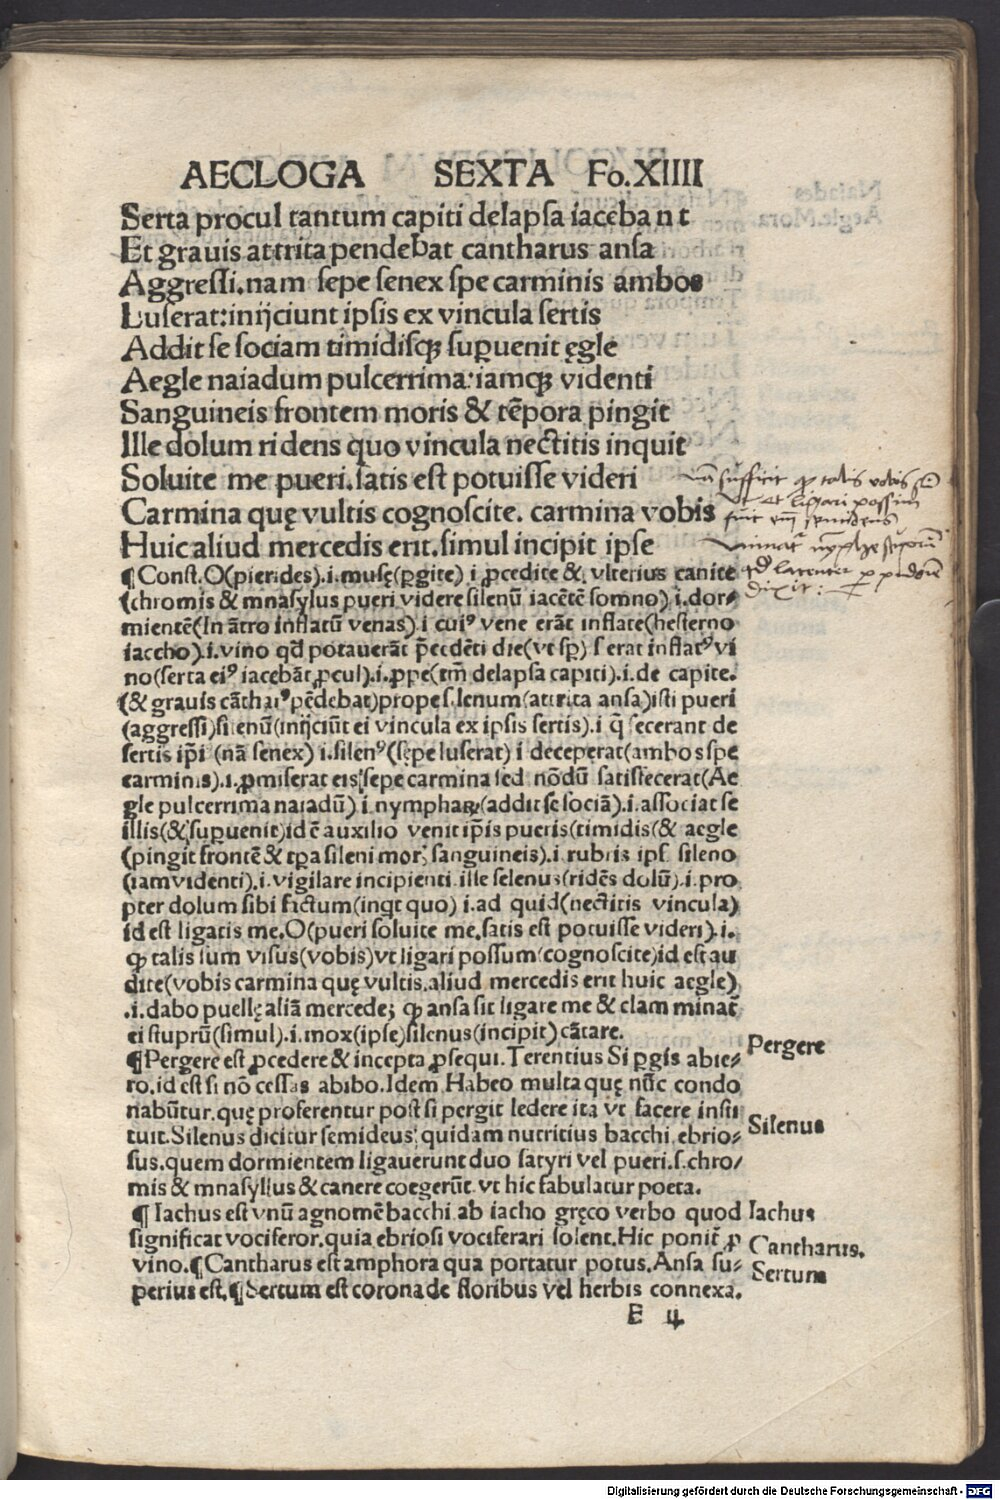 AECLOGA SEXTA Fo.XIIII
Serta procul tantum capiti delapſa iacebant
Et grauis attrita pendebat cantharus anſa
Aggreſſi.nam ſepe ſenex ſpe carminis ambos
Luſerat:inijciunt ipſis ex vincula ſertis
Addit ſe ſociam timidiſqꝫ ſuꝑuenit ęgle
Aegle naiadum pulcerrima:iamqꝫ videnti
Sanguineis frontem moris & tēpora pingit
Ille dolum ridens quo vincula nectitis inquit
Soluite me pueri.ſatis eſt potuiſſe videri
Carmina quę vultis cognoſcite. carmina vobis
Huic aliud mercedis erit.ſimul incipit ipſe
¶Conſt.O(pierides).i.muſę(ꝑgite) i ꝓcedite & vlterius canite
(chromis & mnaſylus pueri videre ſilenū iacētē ſomno).i.dor⸗
mientē(In ātro inflatū venas).i cuiꝰ vene erāt inflate(heſterno
iaccho).i.vino qđ potauerāt p̄cedēti die(vt ſꝑ) ſ erat inflatꝰ vi
no(ſerta eiꝰ iacebāt ꝓcul).i.ꝓpe(tm̄ delapſa capiti).i.de capite.
(& grauis cātharꝰ pēdebat)prope ſilenum(attrita anſa)iſti pueri
(aggreſſi)ſilenū(inijciūt ei vincula ex ipſis ſertis).i q̄ fecerant de
ſertis ip̄i (nā ſenex) i.ſilenꝰ(ſępe luſerat) i deceperat(ambos ſpe
carminis).i.ꝓmiſerat eis ſepe carmina ſed nōdū ſatiſfecerat(Ae
gle pulcerrima naiadū).i.nympharꝝ(addit ſe ſociā).i.aſſociat ſe
illis(& ſuꝑuenit)id ē auxilio venit ip̄is pueris(timidis(& aegle
(pingit frontē & tp̄a ſileni moris ſanguineis).i rubris ipſi ſileno
(iam videnti).i.vigilare incipienti ille ſelenus(ridēs dolū).i.pro
pter dolum ſibi factum(inqt quo) i.ad quid(nectitis vincula)
id eſt ligatis me.O(pueri ſoluite me.ſatis eſt potuiſſe videri).i.
ꝙ talis ſum viſus(vobis)vt ligari poſſum(cognoſcite)id eſt au
dite(vobis carmina quę vultis.aliud mercedis erit huic aegle)
.i.dabo puellę aliā mercedē; ꝙ anſa ſit ligare me & clam minat̄
ei ſtuprū(ſimul).i.mox(ipſe)ſilenus(incipit)cātare.
¶Pergere eſt ꝓcedere & incepta ꝓſequi.Terentius Si ꝑgis abie⸗
ro.id eſt ſi nō ceſſas abibo.Idem Habeo multa quę nūc condo
nabūtur.quę proferentur poſt ſi pergit ledere ita vt facere inſti
tuit.Silenus dicitur ſemideus quidam nutritius bacchi ebrio⸗
ſus.quem dormientem ligauerunt duo ſatyri vel pueri.ſ.chro/
mis & mnaſyllus & canere coegerūt.vt hic fabulatur poeta.
¶Iachus eſt vnū agnomē bacchi ab iacho gręco verbo quod
ſignificat vociferor.quia ebrioſi vociferari ſolent.Hic ponit̄ ꝓ
vino.¶Cantharus eſt amphora qua portatur potus.Anſa ſu⸗
perius eſt.¶Sertum eſt corona de floribus vel herbis connexa.
E 4
Pergere
Silenus
Iachus
Cantharus.
Sertum
ſufficit ꝙ talis vobis
vt ligari poſſum
dixit